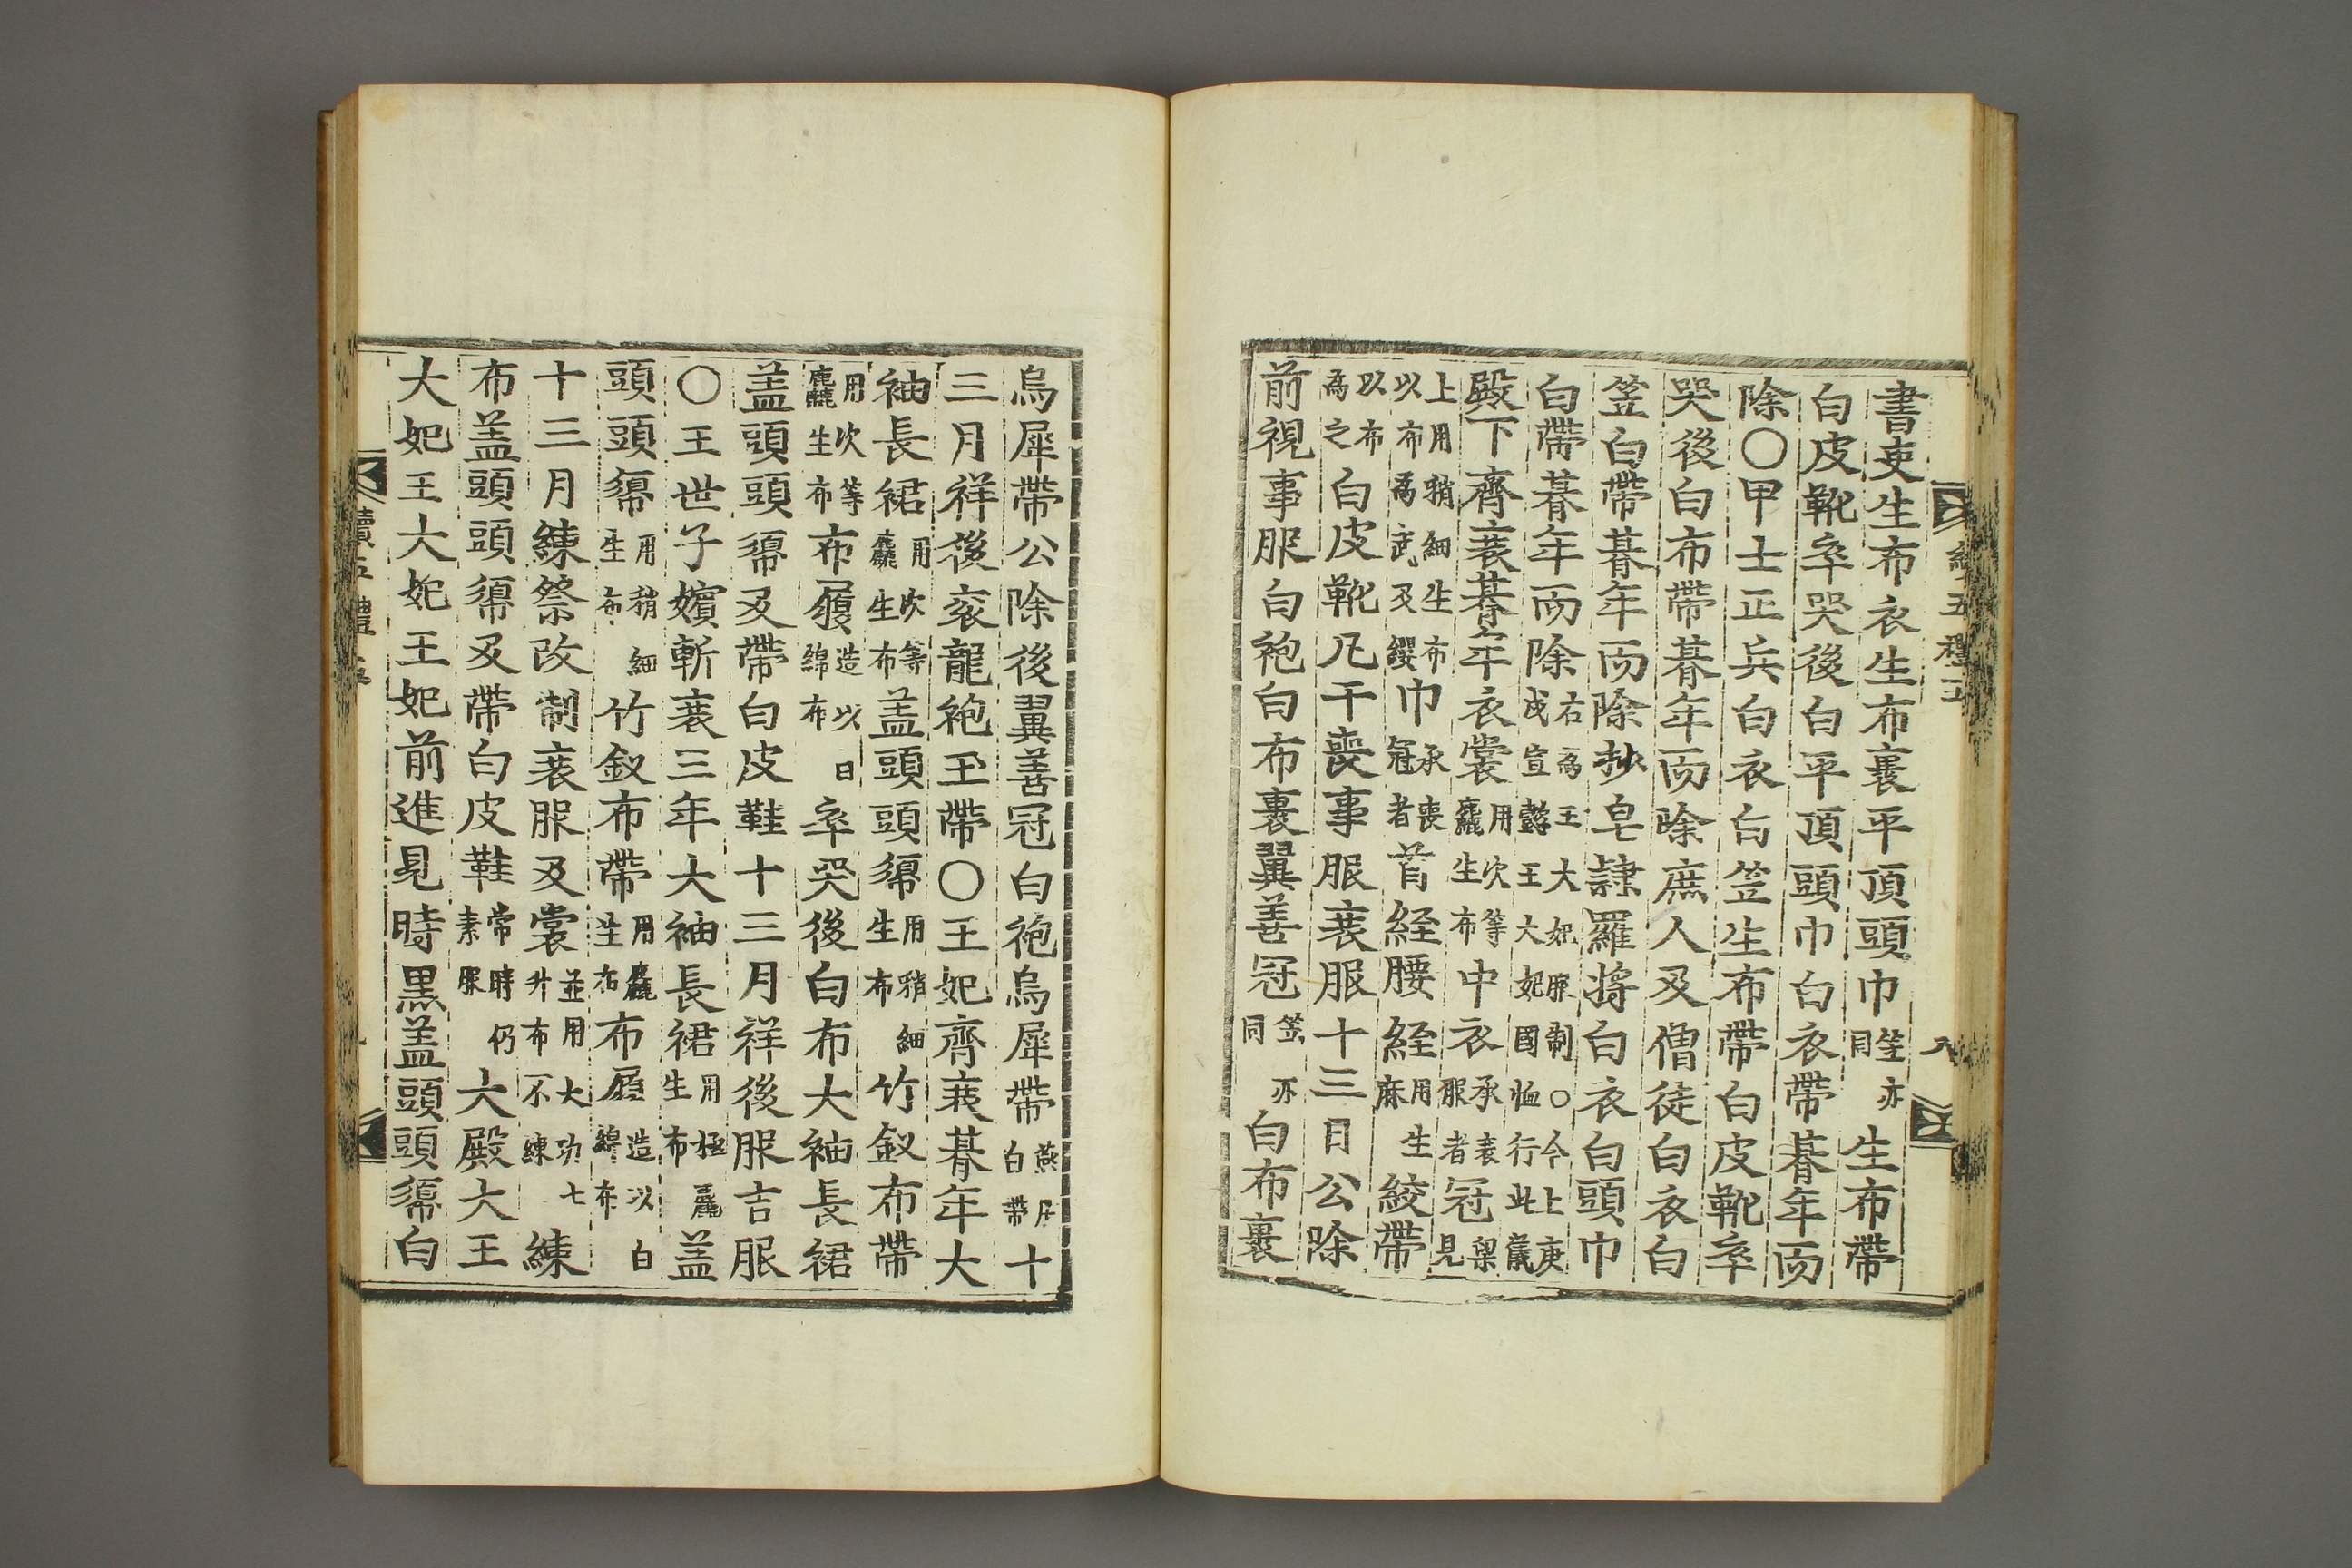 書吏生布衣生布裹平頂頭巾笠亦同生布帶
白皮靴卒哭後白平頂頭巾白衣帶朞年而
除○甲士正兵白衣白笠生布帶白皮靴卒
哭後白布帶朞年而除庶人及僧徒白衣白
笠白帶朞年而除抄皂隷羅將白衣白頭巾
白帶朞年而除右爲王大妃服制○今上庚戌宣懿王大妃國恤行此儀
殿下齊衰朞年衣裳用次等麤生布中衣承衰服者冠梁見
上用稍細生布以布爲武及纓巾承喪冠者首絰腰絰用生麻絞帶
以布爲之白皮靴凡干喪事服衰服十三月公除
前視事服白袍白布裹翼善冠笠亦同白布裹
續五禮五
八
烏犀帶公除後翼善冠白袍烏犀帶燕居白帶十
三月祥後衮龍袍玉帶○王妃齊衰朞年大
袖長裙用次等麤生布盖頭頭𢄼用稍細生布竹釵布帶
用次等麤生布布屨造以白綿布卒哭後白布大袖長裙
盖頭頭𢄼及帶白皮鞋十三月祥後服吉服
○王世子嬪斬衰三年大袖長裙用極麤生布盖
頭頭𢄼用稍細生布竹釵布帶用麤生布布屨造以白綿布
十三月練祭改制衰服及裳並用大功七升布不練練
布盖頭頭𢄼及帶白皮鞋常時仍素服大殿大王
大妃王大妃王妃前進見時黑盖頭頭𢄼白
續五禮五